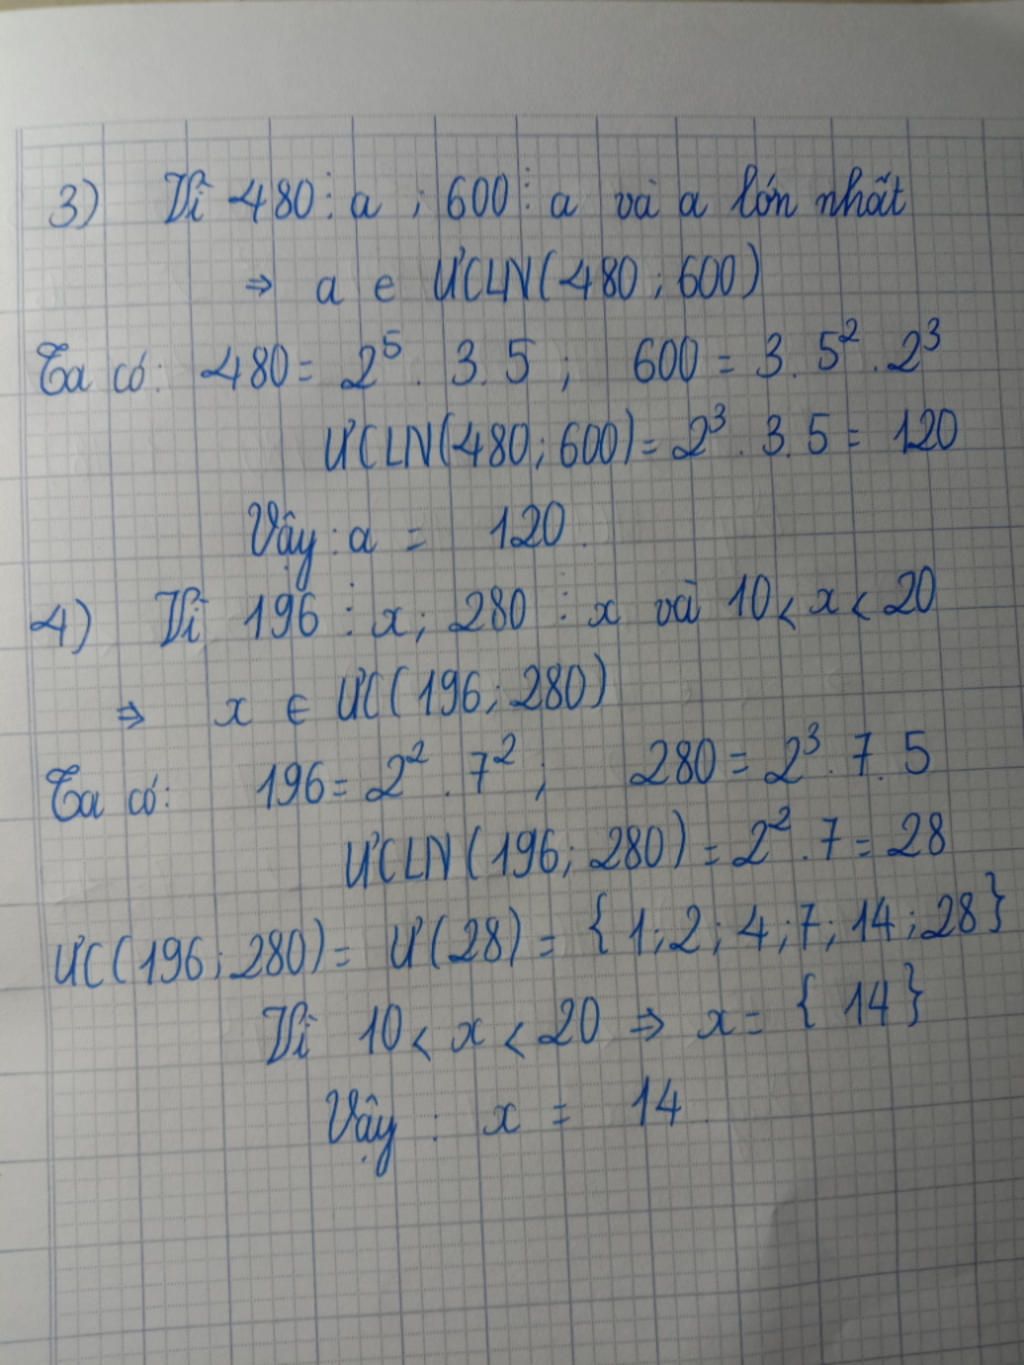 3) Vì 480 ⋮ a ; 600 ⋮ a và a lớn nhất
⇒ a e ƯCLN(480 ; 600)
Ta có: 480 = 2⁵ . 3 . 5 ; 600 = 3 . 5² . 2³
ƯCLN(480 ; 600) = 2³ . 3 . 5 = 120
Vậy : a = 120.
4) Vì 196 ⋮ x ; 280 ⋮ x và 10 < x < 20
⇒ x ∈ ƯC(196 ; 280)
Ta có: 196 = 2² . 7² ; 280 = 2³ . 7 . 5
ƯCLN(196 ; 280) = 2² . 7 = 28
ƯC(196 ; 280) = Ư(28) = {1 ; 2 ; 4 ; 7 ; 14 ; 28}
Vì 10 < x < 20 ⇒ x = {14}
Vậy : x = 14.